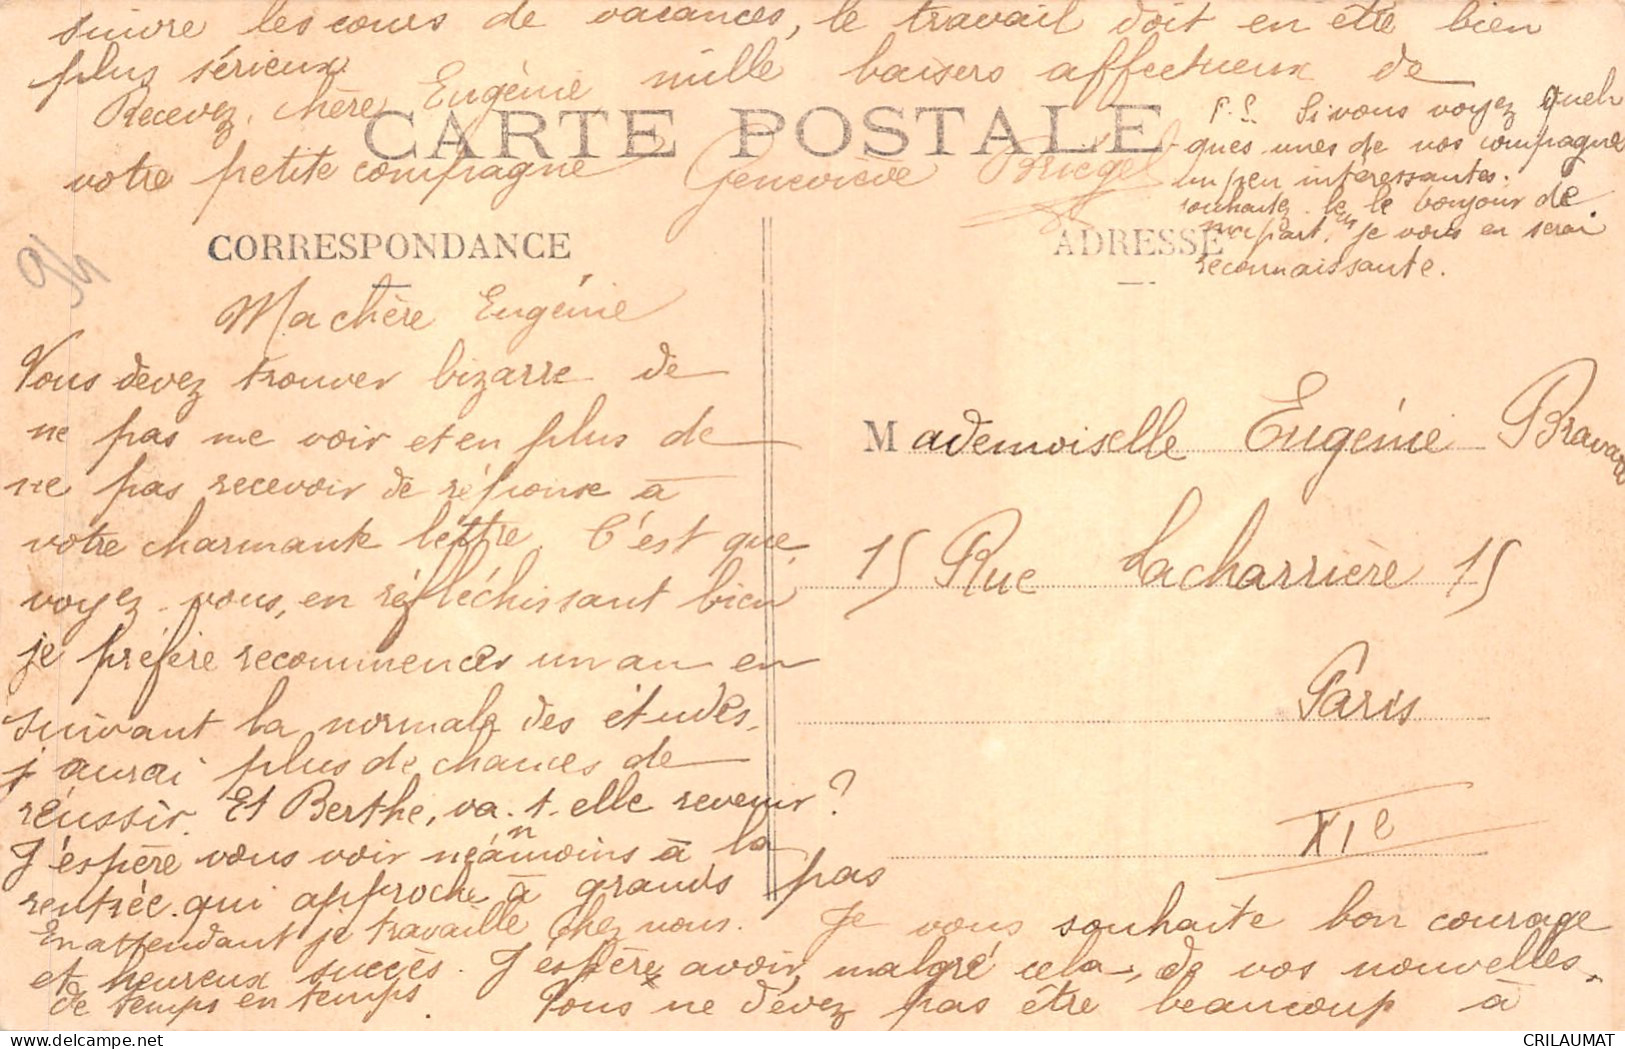 suivre les cours de vacances, le travail doit en être bien
plus sérieux.
Recevez, chère Eugénie mille baisers affectueux de
votre petite compagne Geneviève Briegel
CARTE POSTALE
P.S. Si vous voyez quel-
ques unes de vos compagnes
un peu intéressantes.
souhaitez-leur le bonjour de
ma part, je vous en serai
reconnaissante.
94
CORRESPONDANCE
ADRESSE
Ma chère Eugénie
Vous devez trouver bizarre de
ne pas me voir et en plus de
ne pas recevoir de réponse à
votre charmante lettre. C'est que,
voyez-vous, en réfléchissant bien
je préfère recommencer un an en
suivant la normale des études,
j'aurai plus de chances de
réussir. Et Berthe, va-t-elle revenir?
J'espère vous voir néanmoins à la
rentrée qui approche à grands pas
En attendant je travaille chez nous. Je vous souhaite bon courage
et heureux succès. J'espère avoir, malgré cela, de vos nouvelles
de temps en temps. Vous ne devez pas être beaucoup à
Mademoiselle Eugénie Bravard
15 Rue Lacharrière 15
Paris
XIe
CRILAUMAT